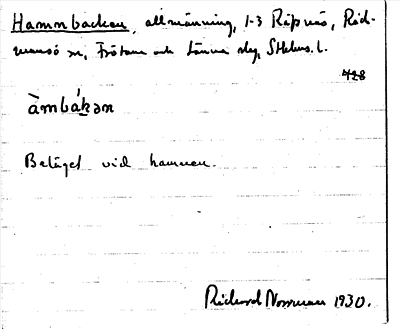 Hamnbacken, allmänning, 1-3 Räfsnäs, Räd-
mansö sn, Frötuna och Länna slg, Sthlms. l.
728
àmbákən
Beläget vid hamnen.
Rickard Norrman 1930.